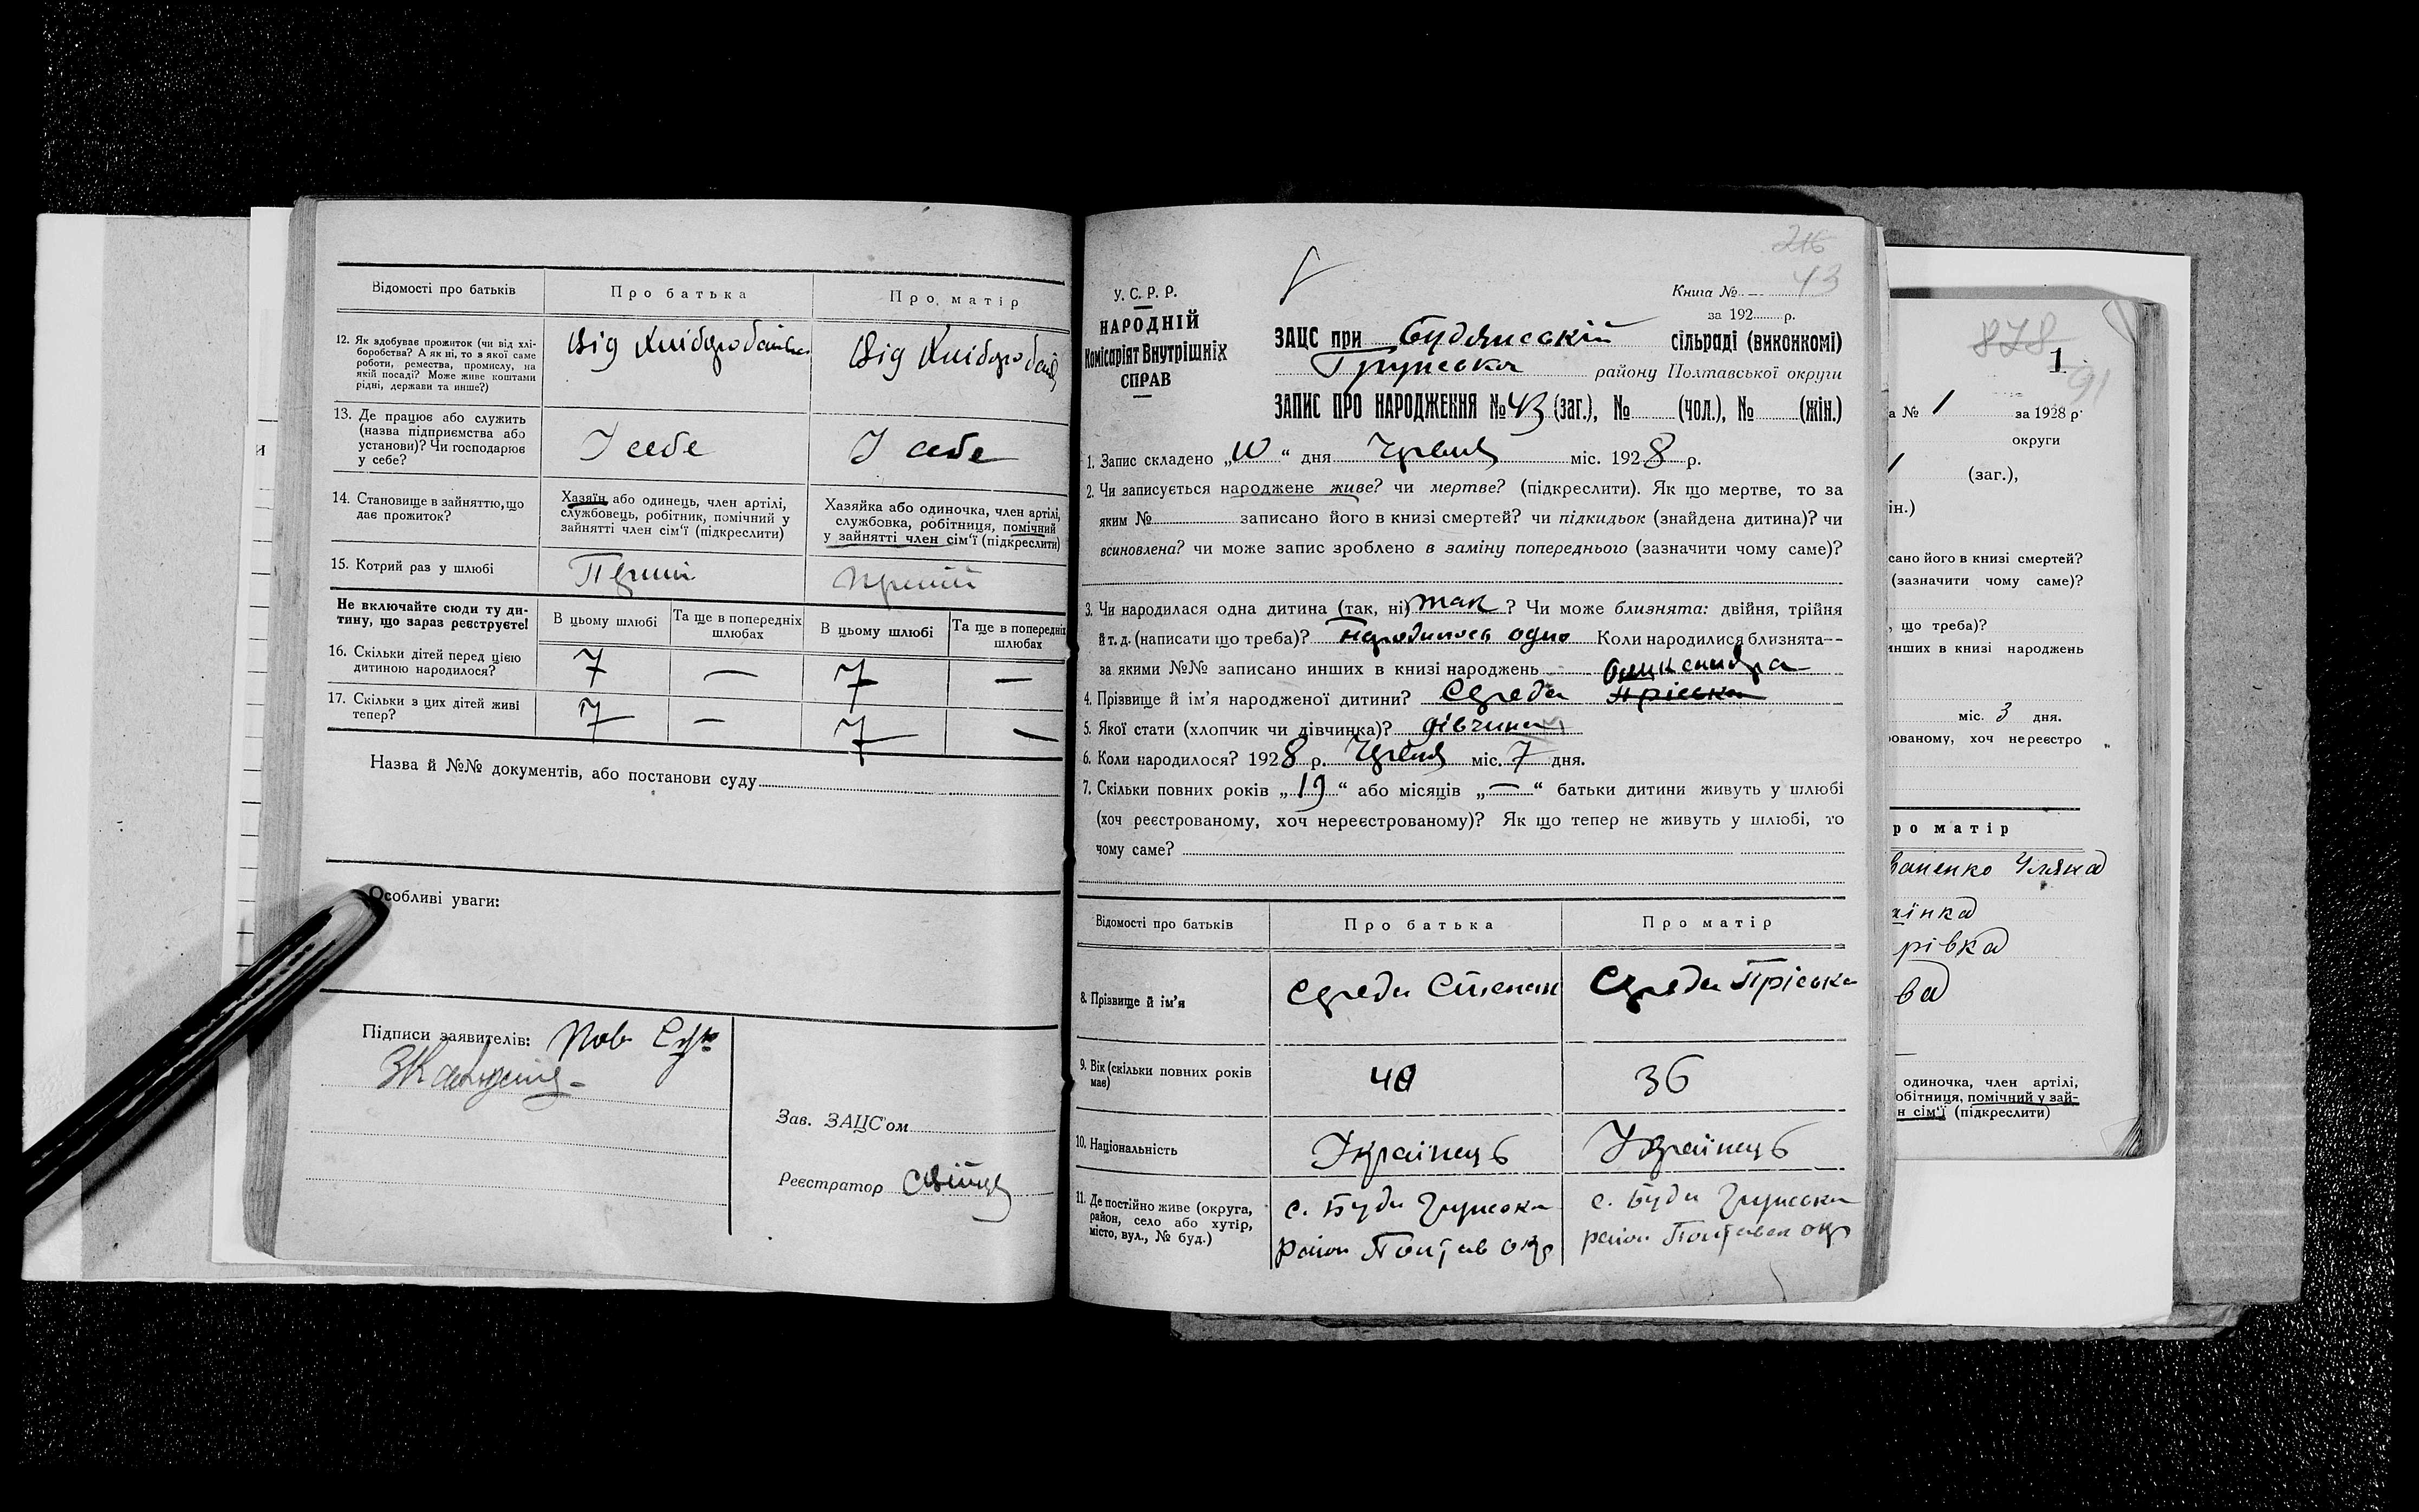 Відомості про батьків Про батька Про матір
12. Як здобуває прожиток (чи від хлі-
боробства? А як ні, то з якої саме
роботи, ремества, промислу, на
якій посаді? Може живе коштами
рідні, держави та инше?)
Від Хліборобства
Від Хлібороб
13. Де працює або служить
(назва підприємства або
установи)? Чи господарює
у себе?
У себе
У себе
14. Становище в зайняттю, що
дає прожиток?
Хазяїн або одинець, член артілі,
службовець, робітник, помічний у
зайнятті член сім'ї (підкреслити)
Хазяйка або одиночка, член артілі,
службовка, робітниця, помічний
у зайнятті член сім'ї (підкреслити)
15. Котрий раз у шлюбі
Перший
Перший
Не включайте сюди ту ди-
тину, що зараз реєструєте!
В цьому шлюбі
Та ще в попередніх
шлюбах
В цьому шлюбі
Та ще в попередніх
шлюбах
16. Скільки дітей перед цією
дитиною народилося?
7 — 7 —
17. Скільки з цих дітей живі
тепер?
7 — 7 —
Назва й №№ документів, або постанови суду
Особливі уваги:
Підписи заявителів:
Зав. ЗАЦС'ом
Реєстратор
216
43
У. С. Р. Р.
НАРОДНІЙ
Комісаріят Внутрішніх
СПРАВ
Книга №
за 192 р.
ЗАЦС при Будянській сільраді (виконкомі)
Грунська району Полтавської округи
ЗАПИС ПРО НАРОДЖЕННЯ № 43 (заг.), № (чол.), № (жін.)
1. Запис складено „10“ дня Червня міс. 1928 р.
2. Чи записується народжене живе? чи мертве? (підкреслити). Як що мертве, то за
яким № записано його в книзі смертей? чи підкидьок (знайдена дитина)? чи
всиновлена? чи може запис зроблено в заміну попереднього (зазначити чому саме)?
3. Чи народилася одна дитина (так, ні) так ? Чи може близнята: двійня, трійня
й т. д. (написати що треба)? народилось одно Коли народилися близнята—
за якими №№ записано инших в книзі народжень
Олександра
4. Прізвище й ім'я народженої дитини? Середа Пріська
5. Якої стати (хлопчик чи дівчинка)? дівчина
6. Коли народилося? 1928 р. Червня міс. 7 дня.
7. Скільки повних років „19“ або місяців „—“ батьки дитини живуть у шлюбі
(хоч реєстрованому, хоч нереєстрованому)? Як що тепер не живуть у шлюбі, то
чому саме?
Відомості про батьків Про батька Про матір
8. Прізвище й ім'я
Середа Степан
Середа Пріська
9. Вік (скільки повних років
має)
40
36
10. Національність
Українець
Українець
11. Де постійно живе (округа,
район, село або хутір,
місто, вул., № буд.)
с. Буди Грунська
район Полтав окр
с. Буди Грунська
район Полтавск окр
878
1
91
а № 1 за 1928 р.
округи
(заг.),
ін.)
сано його в книзі смертей?
(зазначити чому саме)?
, що треба)?
инших в книзі народжень
міс. 3 дня.
ованому, хоч нереєстро
ро матір
ваненко Уляна
їнка
рівка
ва
одиночка, член артілі,
обітниця, помічний у зай-
н сім'ї (підкреслити)